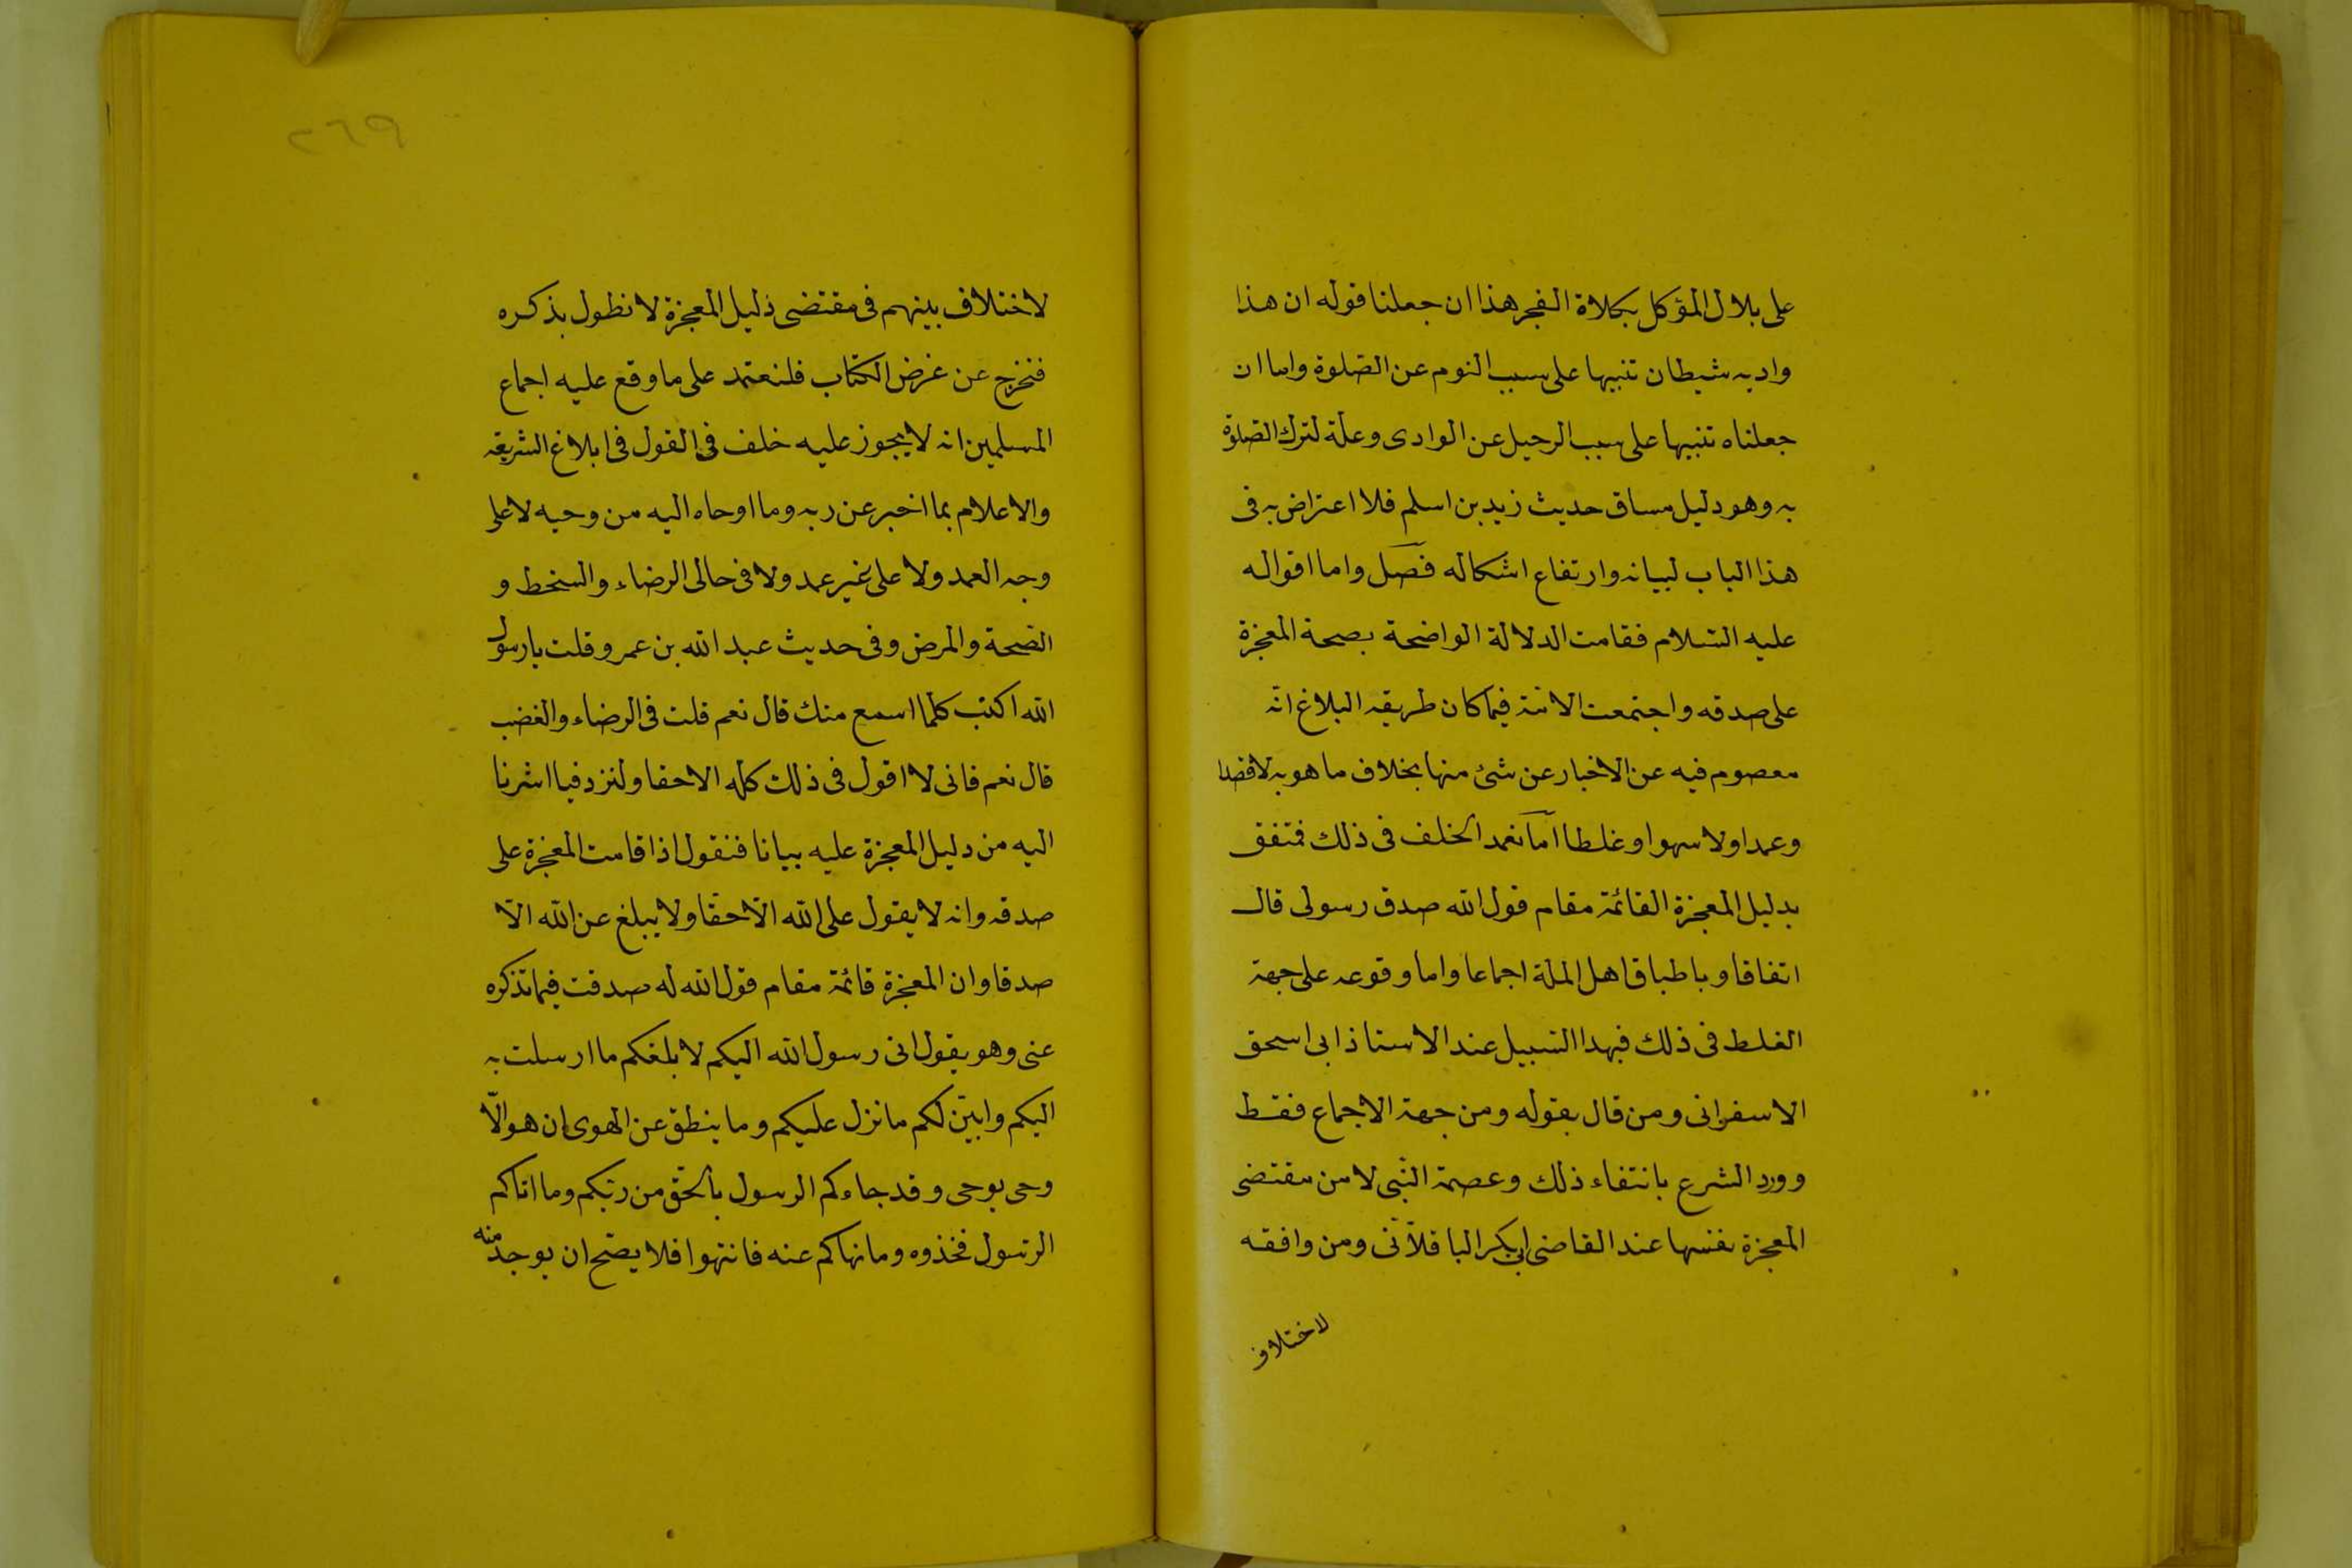 على بلال المؤكل بكلاة الفجر هذا ان جعلنا قوله ان هذا
واد به شيطان تنبيها على سبب النوم عن الصلوة واما ان
جعلناه تنبيها على سبب الرحيل عن الوادى وعلة لترك الصلوة
به وهو دليل مساق حديث زيد بن اسلم فلا اعتراض به فى
هذا الباب لبيانه وارتفاع اشكاله فصل واما اقواله
عليه السّلام فقامت الدلالة الواضحة بصحة المعجزة
على صدقه واجتمعت الامّة فيما كان طريقه البلاغ انّه
معصوم فيه عن الاخبار عن شئ منها بخلاف ما هو به لا قصدا
وعمدا ولا سهوا وغلطا اما تعمد الخلف فى ذلك فمتفق
بدليل المعجزة القائمة مقام قول الله صدق رسولى قال
اتفاقا وباطباق اهل الملة اجماعا واما وقوعه على جهة
الغلط فى ذلك فبهذا السّبيل عند الاستاذ ابى اسحق
الاسفرانى ومن قال بقوله ومن جهة الاجماع فقط
وورد الشرع بانتفاء ذلك وعصمة النّبى لا من مقتضى
المعجزة نفسها عند القاضى ابى بكر الباقلاّنى ومن وافقه
لاختلاف
٢٦٩
لاختلاف بينهم فى مقتضى دليل المعجزة لا نطول بذكره
فنخرج عن غرض الكتاب فلنعتمد على ما وقع عليه اجماع
المسلمين انه لا يجوز عليه خلف فى القول فى ابلاغ الشريعة
والاعلام بما اخبر عن ربه وما اوحاه اليه من وحيه لا على
وجه العمد ولا على غير عمد ولا فى حالى الرضاء والسخط و
الصّحة والمرض وفى حديث عبد الله بن عمرو قلت يا رسول
الله اكتب كلما اسمع منك قال نعم قلت فى الرضاء والغضب
قال نعم فانى لا اقول فى ذلك كله الا حقا ولنزد فيما اشرنا
اليه من دليل المعجزة عليه بيانا فنقول اذا قامت المعجزة على
صدقه وانه لا يقول على الله الاّ حقا ولا يبلغ عن الله الاّ
صدقا وان المعجزة قائمة مقام قول الله له صدقت فيما تذكره
عنى وهو يقول انى رسول الله اليكم لابلغكم ما ارسلت به
اليكم وابيّن لكم ما نزل عليكم وما ينطق عن الهوى ان هو الّا
وحى يوحى وقد جاءكم الرسول بالحقّ من ربّكم وما اتاكم
الرّسول فخذوه وما نهاكم عنه فانتهوا فلا يصّح ان يوجد منه